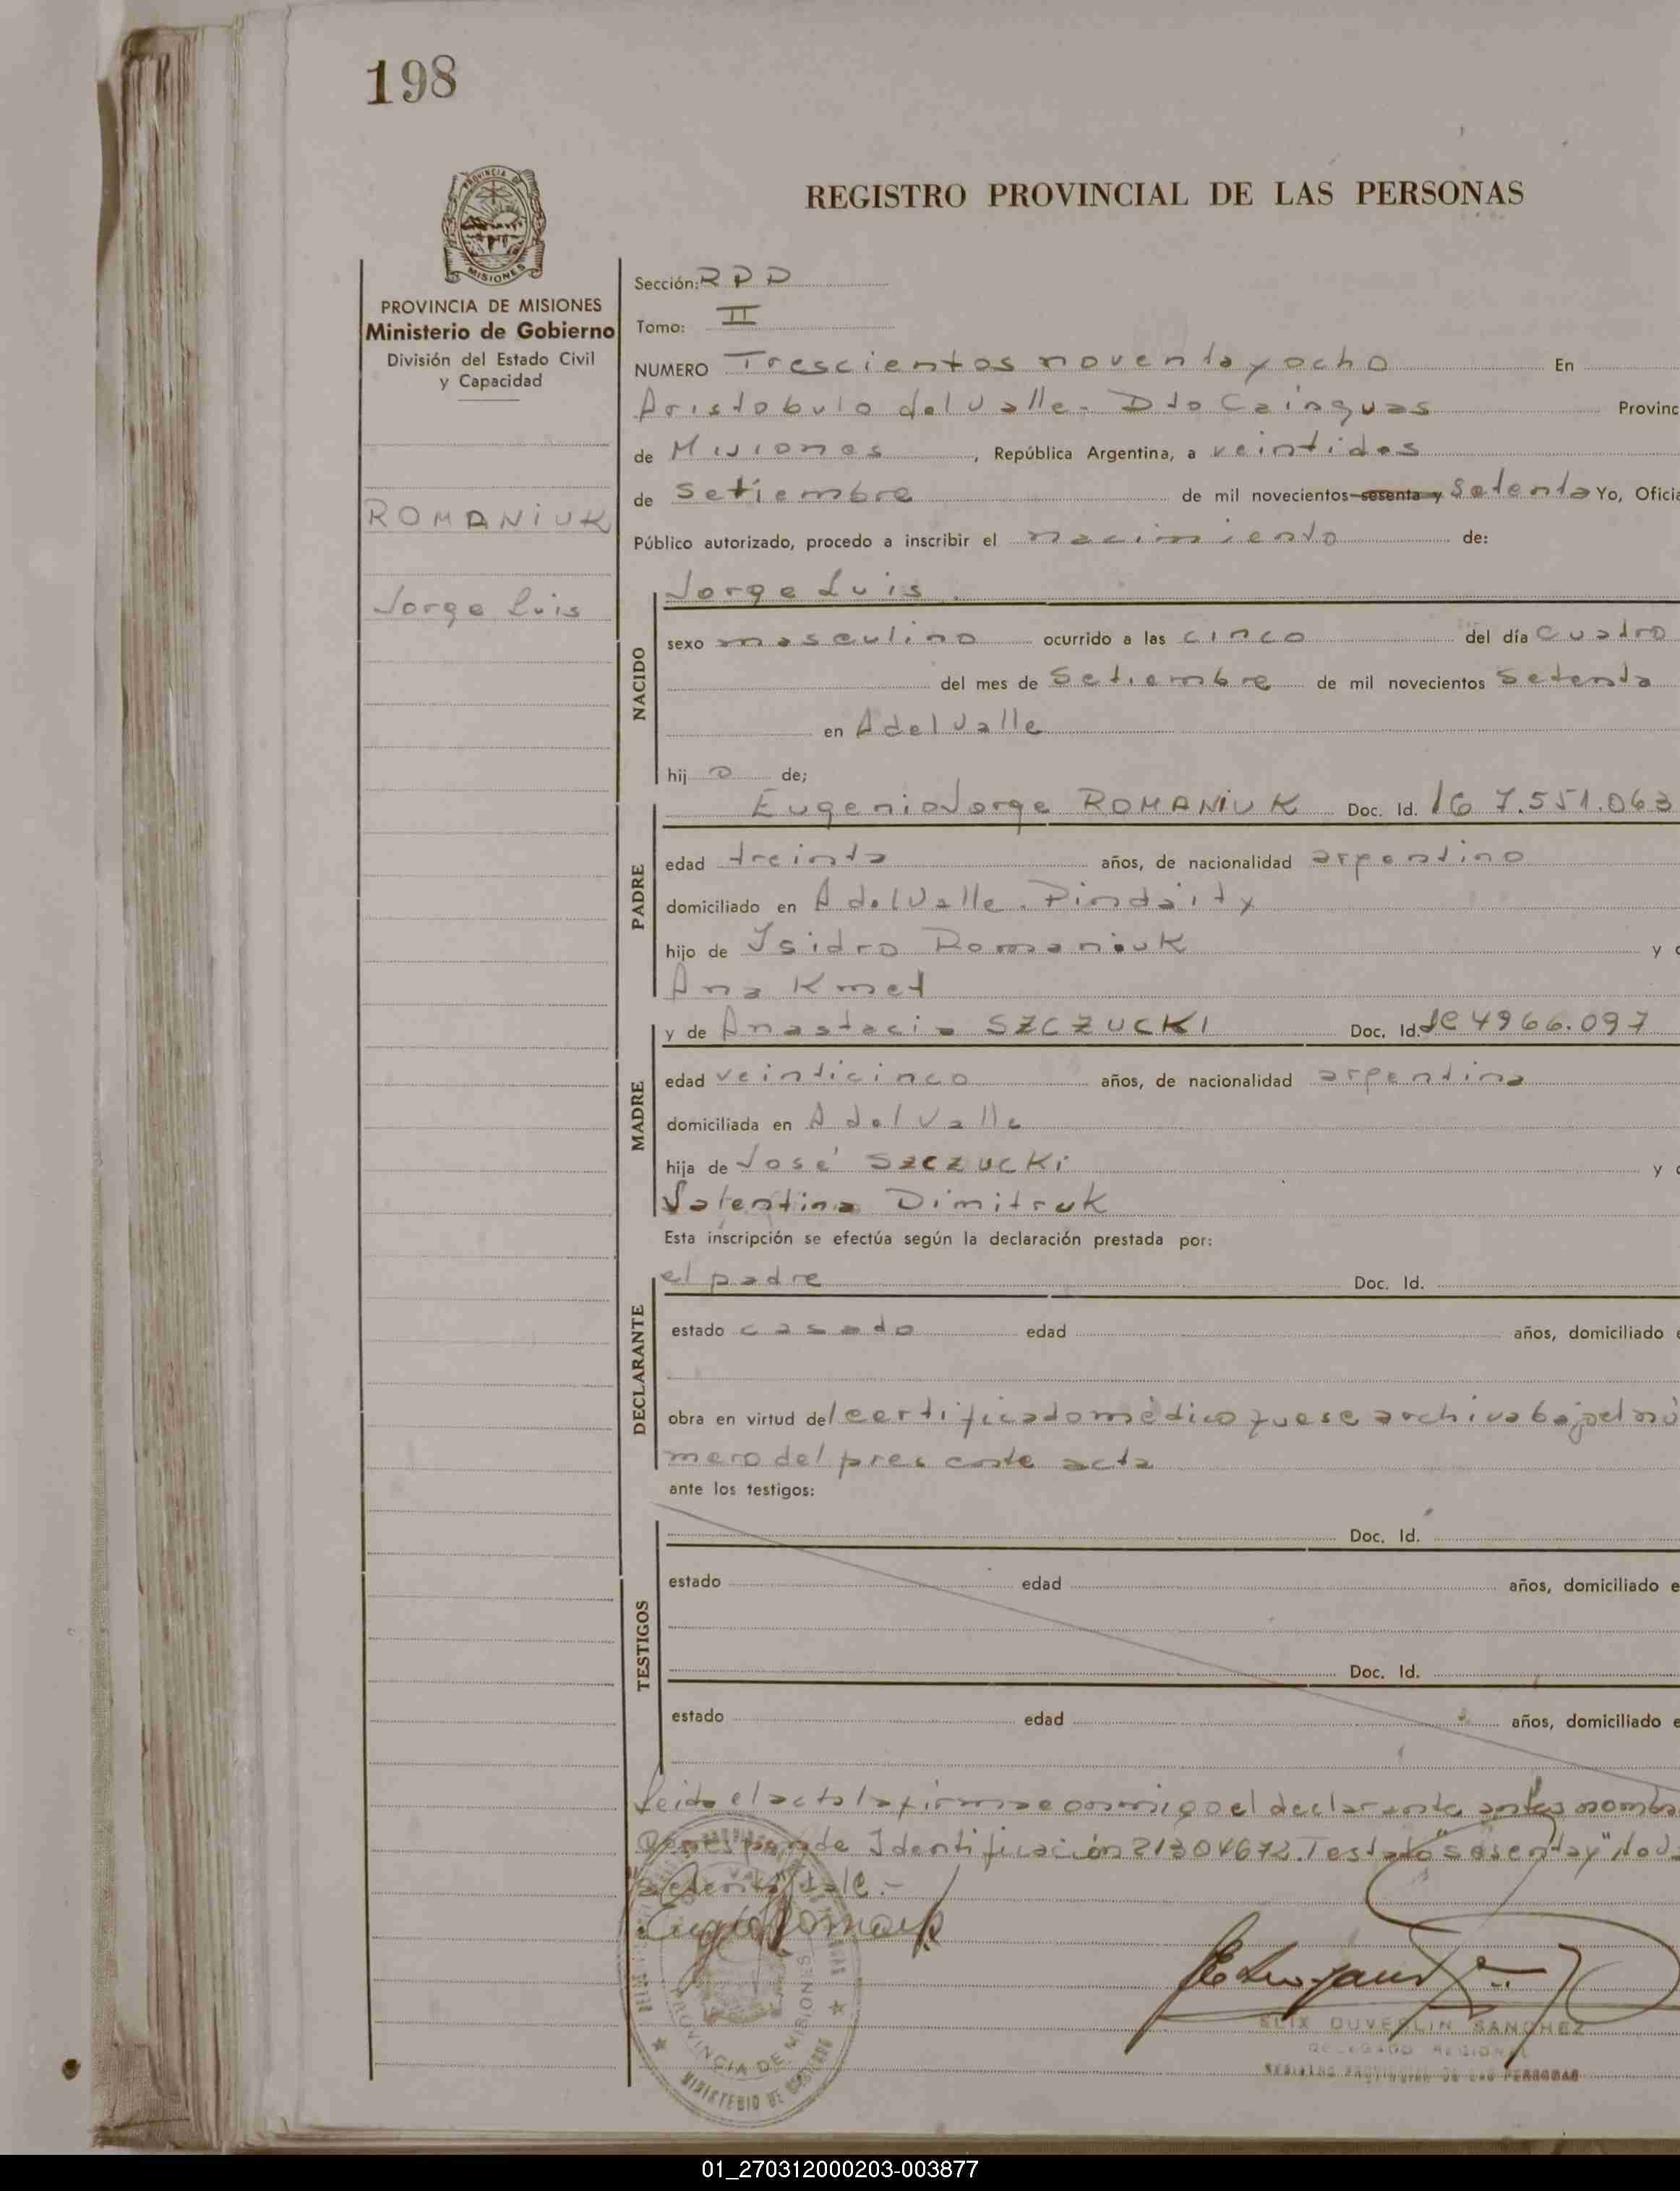 198
PROVINCIA DE
MISIONES
PROVINCIA DE MISIONES
Ministerio de Gobierno
División del Estado Civil
y Capacidad
ROMANIUK
Jorge Luis
REGISTRO PROVINCIAL DE LAS PERSONAS
Sección: RPP
Tomo: II
NUMERO Trescientos noventa y ocho En
Aristobulo del Valle. Dto Cainguas Provinc
de Misiones, República Argentina, a veintidos
de Setiembre de mil novecientos sesenta y Setenta Yo, Oficia
Público autorizado, procedo a inscribir el nacimiento de:
NACIDO
Jorge Luis.
sexo masculino ocurrido a las cinco del día cuatro
del mes de Setiembre de mil novecientos setenta
en A del Valle
hij o de;
PADRE
Eugenio Jorge ROMANIUK Doc. Id. 7.551.063
edad treinta años, de nacionalidad argentino
domiciliado en A del Valle. Pindaity
hijo de Isidro Romaniuk y
Ana Kmet
MADRE
y de Anastacia SZCZUCKI Doc. Id. 4966.097
edad veinticinco años, de nacionalidad argentina
domiciliada en A del Valle
hija de José SZCZUCKi y
Valentina Dimitruk
Esta inscripción se efectúa según la declaración prestada por:
DECLARANTE
el padre Doc. Id.
estado casado edad años, domiciliado
obra en virtud del certificado médico que se archiva bajo el nú
mero del presente acta
ante los testigos:
TESTIGOS
Doc. Id.
estado edad años, domiciliado e
Doc. Id.
estado edad años, domiciliado e
Leida el acta la firma conmigo el declarante antes nombra
Corresponde Identificación 21304672. Testado "sesenta y"
Setenta Vale.-
PROVINCIA DE MISIONES
MINISTERIO DE GOBIERNO
ELIX DUVERLIN SANCHEZ
DELEGADO REGIONAL
REGISTRO PROVINCIAL DE LAS PERSONAS
01_270312000203-003877